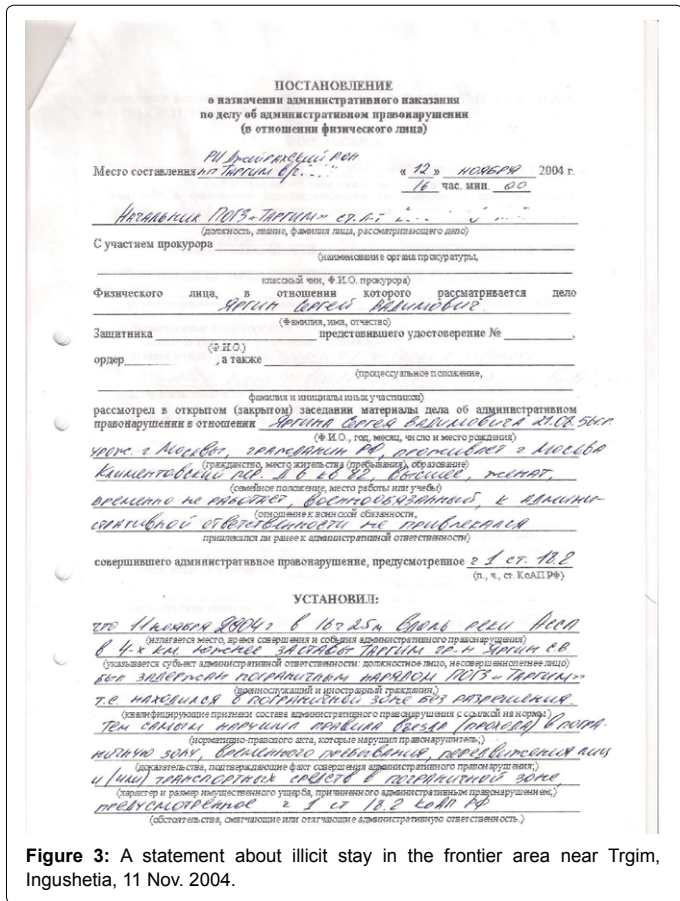 ПОСТАНОВЛЕНИЕ
о назначении административного наказания
по делу об административном правонарушении
(в отношении физического лица)
РИ Джейрахский рон
Место составления нп Таргим « 12 » ноября 2004 г.
16 час. мин. 00
Начальник ПОГЗ «Таргим» ст. л-т
(должность, звание, фамилия лица, рассматривающего дело)
С участием прокурора
(наименование органа прокуратуры,
классный чин, Ф.И.О. прокурора)
Физического лица, в отношении которого рассматривается дело
Яргин Сергей Вадимович
(Фамилия, имя, отчество)
Защитника представившего удостоверение № ,
(Ф.И.О.)
ордер , а также
(процессуальное положение,
фамилия и инициалы иных участников)
рассмотрел в открытом (закрытом) заседании материалы дела об административном
правонарушении в отношении Яргина Сергея Вадимовича 56г.р.
(Ф.И.О., год, месяц, число и место рождения)
урож. г Москвы, гражданин РФ, проживает г Москва
(гражданство, место жительства (пребывания), образование)
Климентовский пер. д 6 высшее, женат,
(семейное положение, место работы или учебы)
временно не работает, военнообязанный, к админи-
(отношение к воинской обязанности,
стративной ответственности не привлекался
привлекался ли ранее к административной ответственности)
совершившего административное правонарушение, предусмотренное ч 1 ст. 18.2
(п., ч., ст. КоАП РФ)
УСТАНОВИЛ:
что 11 ноября 2004г в 16ч 25м вдоль реки Асса
(излагается место, время совершения и события административного правонарушения)
в 4-х км. южнее заставы Таргим гр-н Яргин СВ
(указывается субъект административной ответственности: должностное лицо, несовершеннолетнее лицо)
был задержан пограничным нарядом ПОГЗ «Таргим»
(военнослужащий и иностранный гражданин,)
т.е. находился в пограничной зоне без разрешения.
(квалифицирующие признаки состава административного правонарушения с ссылкой на нормы)
Тем самым нарушил правила въезда (прохода) в погра-
(нормативно-правового акта, которые нарушил правонарушитель;)
ничную зону, временного пребывания, передвижения лиц
(доказательства, подтверждающие факт совершения административного правонарушения;)
и (или) транспортных средств в пограничной зоне,
(характер и размер имущественного ущерба, причиненного административным правонарушением;)
предусмотренное ч 1 ст 18.2 КоАП РФ
(обстоятельства, смягчающие или отягчающие административную ответственность.)
Figure 3: A statement about illicit stay in the frontier area near Trgim,
Ingushetia, 11 Nov. 2004.